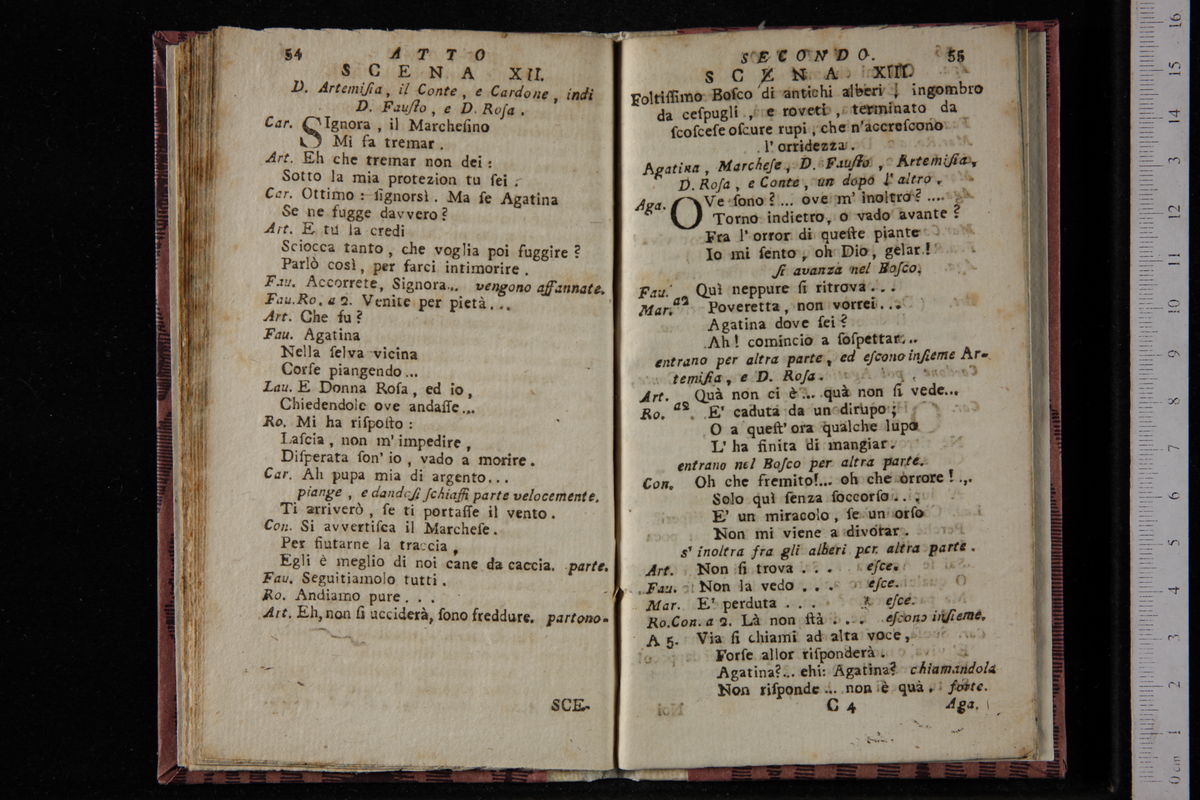 54 ATTO
SCENA XII.
D. Artemiſia, il Conte, e Cardone, indi
D. Fauſto, e D. Roſa.
Car. SIgnora, il Marcheſino
Mi fa tremar.
Art. Eh che tremar non dei:
Sotto la mia protezion tu ſei.
Car. Ottimo: ſignorsì. Ma ſe Agatina
Se ne fugge davvero?
Art. E tu la credi
Sciocca tanto, che voglia poi fuggire?
Parlò così, per farci intimorire.
Fau. Accorrete, Signora... vengono affannate.
Fau.Ro. a 2. Venite per pietà...
Art. Che fu?
Fau. Agatina
Nella ſelva vicina
Corſe piangendo...
Lau. E Donna Roſa, ed io,
Chiedendole ove andaſſe...
Ro. Mi ha riſpoſto:
Laſcia, non m'impedire,
Diſperata ſon' io, vado a morire.
Car. Ah pupa mia di argento...
piange, e dandoſi ſchiaffi parte velocemente.
Ti arriverò, ſe ti portaſſe il vento.
Con. Si avvertiſca il Marcheſe.
Per fiutarne la traccia,
Egli è meglio di noi cane da caccia. parte.
Fau. Seguitiamolo tutti.
Ro. Andiamo pure...
Art. Eh, non ſi ucciderà, ſono freddure. partono.
SCE-
SECONDO. 55
SCENA XIII.
Foltiſſimo Boſco di antichi alberi, ingombro
da ceſpugli, e roveti, terminato da
ſcoſceſe oſcure rupi, che n'accreſcono
l'orridezza.
Agatina, Marcheſe, D. Fauſto, Artemiſia,
D. Roſa, e Conte, un dopo l'altro.
Aga. OVe ſono?... ove m'inoltro?....
Torno indietro, o vado avante?
Fra l'orror di queſte piante
Io mi ſento, oh Dio, gelar!
ſi avanza nel Boſco.
Fau. Quì neppure ſi ritrova...
Mar. a2 Poveretta, non vorrei...
Agatina dove ſei?
Ah! comincio a ſoſpettar...
entrano per altra parte, ed eſcono inſieme Ar-
temiſia, e D. Roſa.
Art. Quà non ci è... quà non ſi vede...
Ro. a2 E' caduta da un dirupo;
O a queſt' ora qualche lupo
L'ha finita di mangiar.
entrano nel Boſco per altra parte.
Con. Oh che fremito!... oh che orrore!...
Solo quì ſenza ſoccorſo...
E' un miracolo, ſe un orſo
Non mi viene a divorar.
s'inoltra fra gli alberi per altra parte.
Art. Non ſi trova... eſce.
Fau. Non la vedo... eſce.
Mar. E' perduta... eſce.
Ro.Con. a 2. Là non ſtà... eſcono inſieme.
A 5. Via ſi chiami ad alta voce,
Forſe allor riſponderà.
Agatina?... ehi: Agatina? chiamandola
Non riſponde... non è quà. forte.
C 4 Aga.